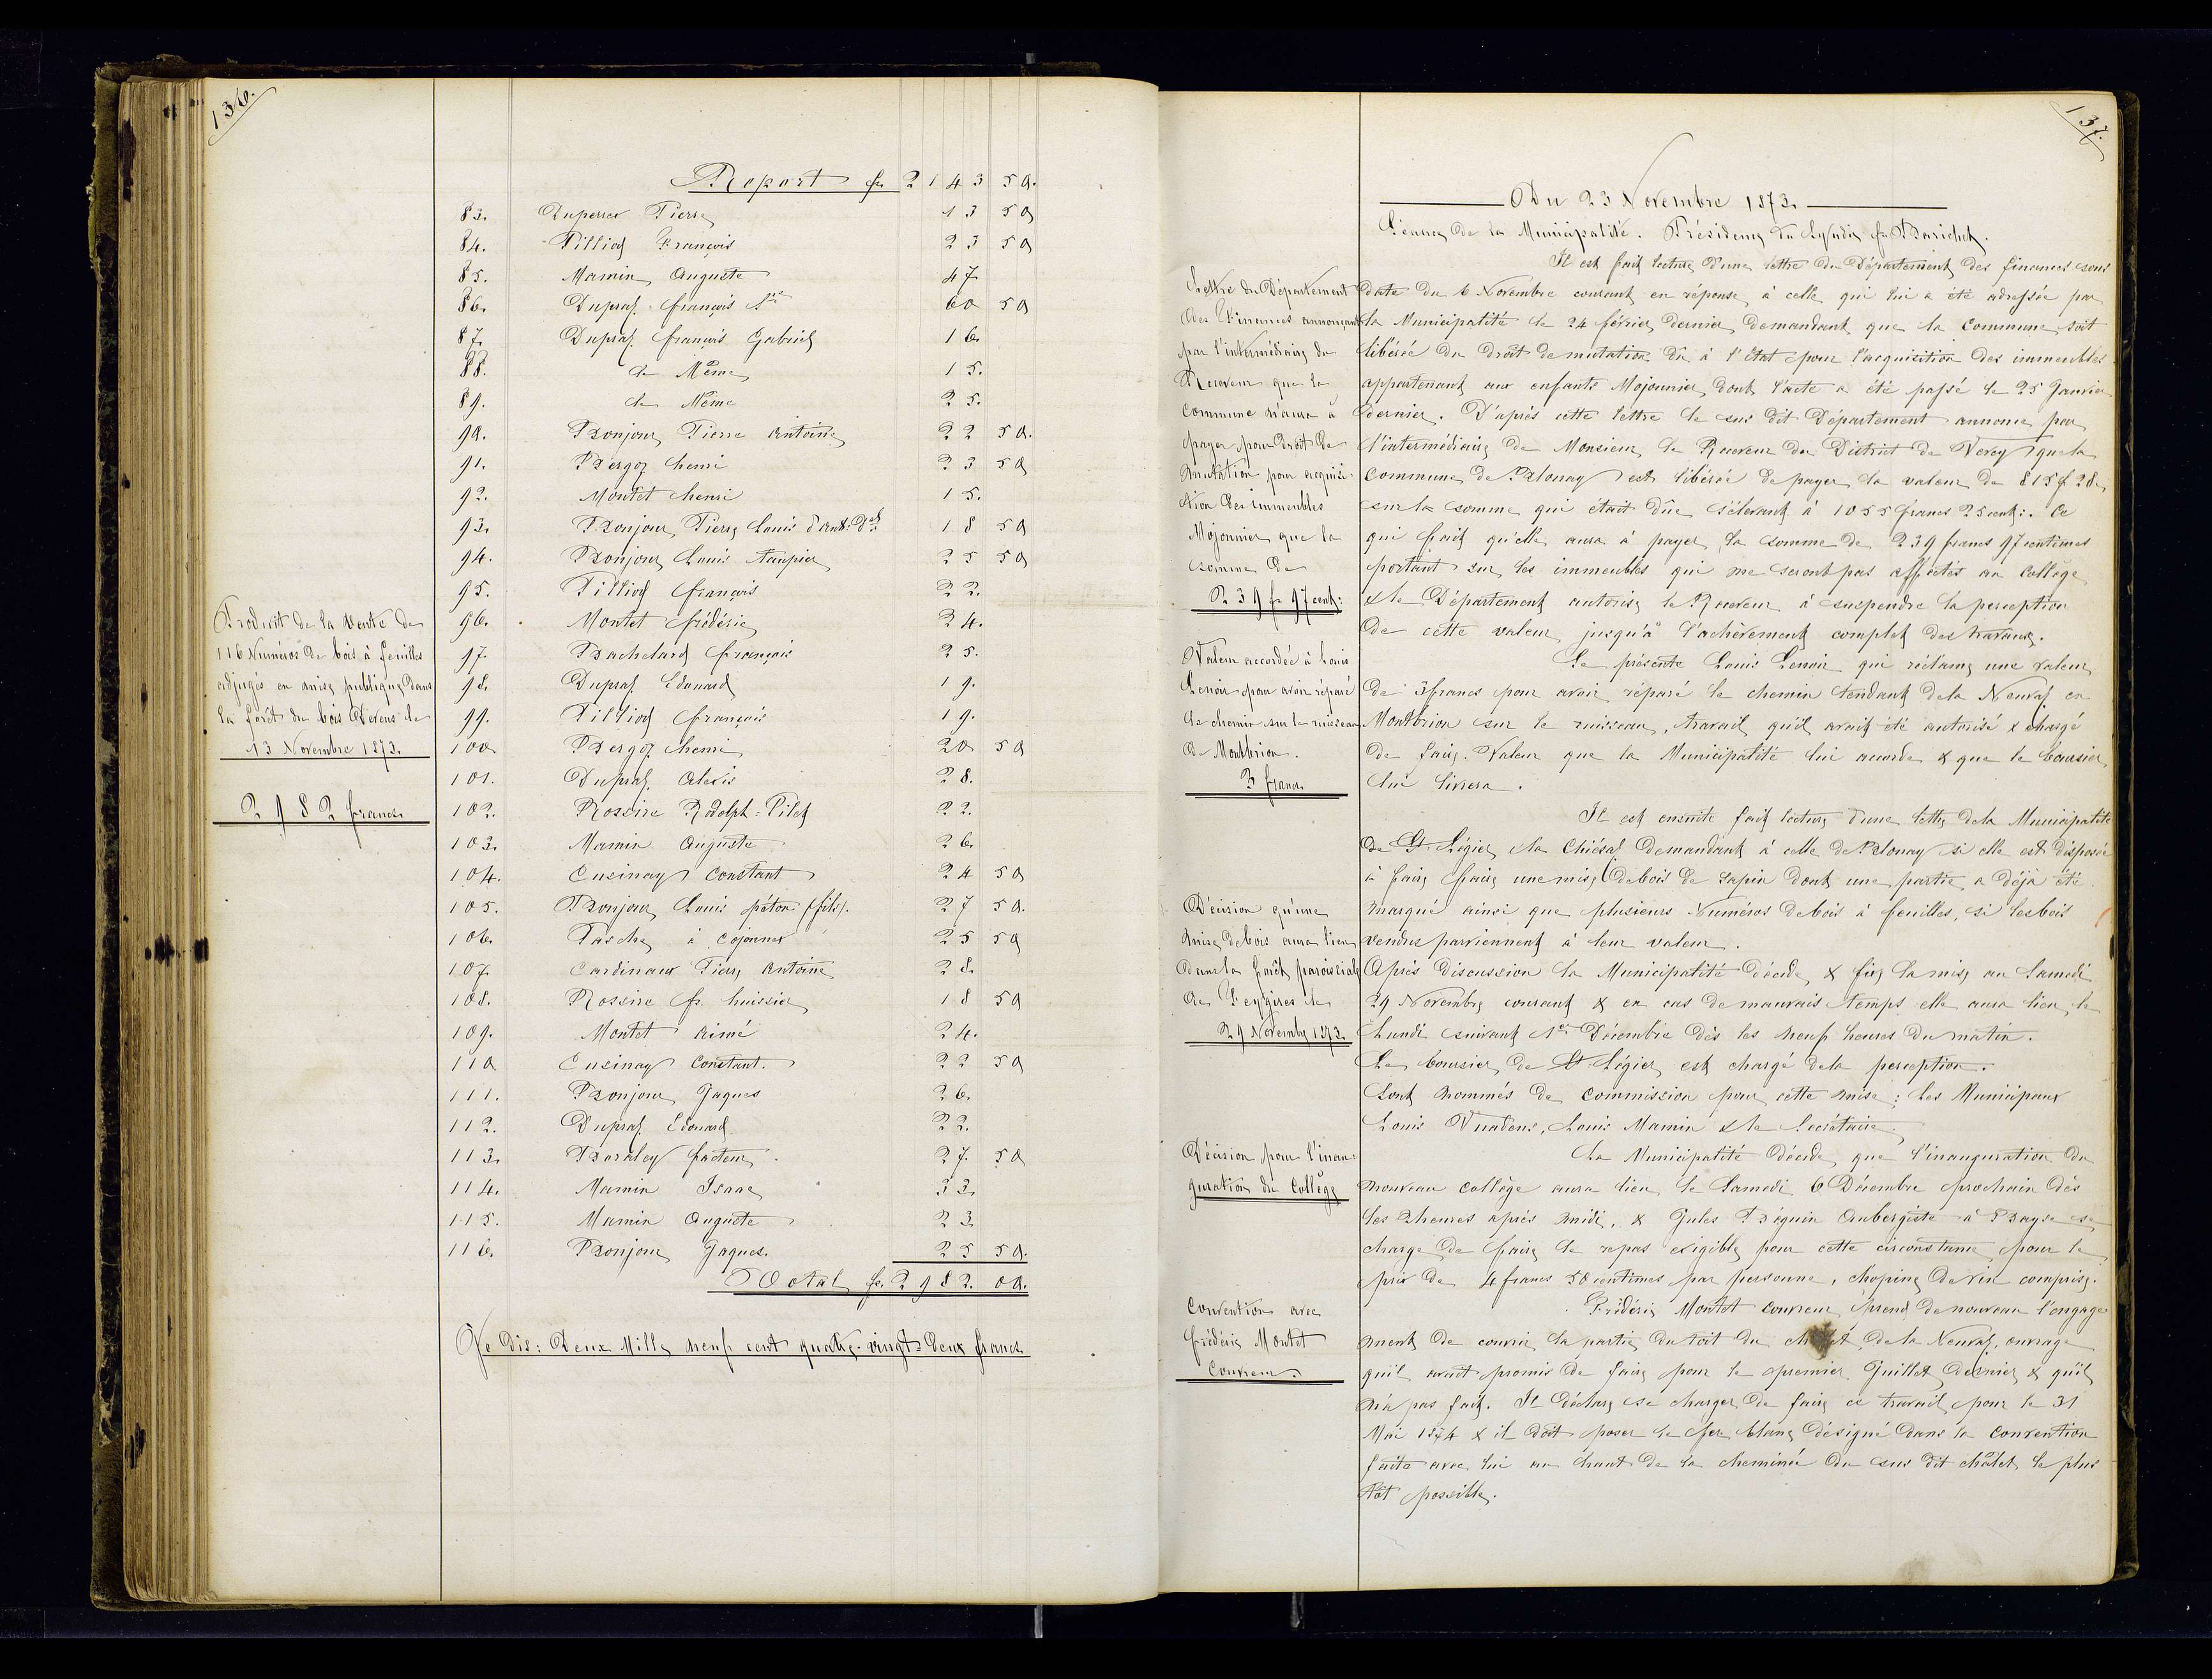 136.
Report fr. 2143 50.
83. Duperrex Pierre 13 50
84. Pilliod François 23 50
85. Mamin Auguste 47.
86. Dupraz François 60 50
87. Dupraz François Gabriel 16.
88. Le Même 15.
89. Le Même 25.
90. Bonjour Pierre Antoine 22 50.
91. Bergoz Henri 23 50
92. Montet Henri 15.
93. Bonjour Pierre Louis d'Ant. Dd. 18 50
94. Bonjour Louis taupier 25 50
95. Pilliod François 22.
96. Montet Frédéric 24.
97. Bachelard François 25.
98. Dupraz Edouard 19.
99. Pilliod François 19.
100. Bergoz Henri 20 50
101. Dupraz Alexis 28.
102. Rossire Rodolph-Pilet 22.
103. Mamin Auguste 26.
104. Cusinay Constant 24 50
105. Bonjour Louis piéton (fils). 27 50.
106. Pasche à Cojonnex 25 50
107. Cardinaux Pierre Antoine 28.
108. Rossire fr. huissier 18 50
109. Montet Aimé 24.
110. Cusinay Constant. 22 50
111. Bonjour Jaques 26.
112. Dupraz Edouard 22.
113. Barbey facteur 27. 50
114. Mamin Isaac 33.
115. Mamin Auguste 23.
116. Bonjour Jaques. 25 50.
Total fr. 2982. 00.
Je Dis: Deux Mille neuf cent quatre-vingt-Deux francs.
Produit de la Vente de
116 Numéros de bois à feuilles
adjugés en mise publique dans
la forêt du bois Devens le
13 Novembre 1873.
2982 francs.
137.
Du 23 Novembre 1873.
Séance de la Municipalité. Présidence du Syndic fr. Barichet.
Il est fait lecture d'une lettre du Département des finances sous
date du 6 Novembre courant en réponse à celle qui lui a été adressée par
la Municipalité le 24 février dernier demandant que la Commune soit
libérée du droit de mutation dû à l'état pour l'acquisition des immeubles
appartenant aux enfants Mojonnier dont l'acte a été passé le 25 Janvier
dernier. D'après cette lettre le sus dit Département annonce par
l'intermédiaire de Monsieur le Receveur du District de Vevey que la
Commune de Blonay est libérée de payer la valeur de 815 f 28.
sur la somme qui était dûe s'élevant à 1055 francs 25 cent:. Ce
qui fait qu'elle aura à payer la somme de 239 francs 97 centimes
portant sur les immeubles qui ne seront pas affectés au Collège
& le Département autorise le Receveur à suspendre la perception
de cette valeur jusqu'à l'achèvement complet des travaux.
Lettre du Département
des Finances annonçant
par l'intermédiaire du
Receveur que la
Commune n'aura à
payer pour Droit de
mutation pour acquisi-
tion des immeubles
Mojonnier que la
somme de
239 fr 97 cent:
Se présente Louis Lenoir qui réclame une valeur
de 3 francs pour avoir réparé le chemin tendant de la Neuvaz en
Montbrion sur le ruisseau, travail qu'il avait été autorisé & chargé
de faire. Valeur que la Municipalité lui accorde & que le boursier
lui livrera.
Valeur accordée à Louis
Lenoir pour avoir réparé
le chemin sur le ruisseau
de Montbrion.
3 francs.
Il est ensuite fait lecture d'une lettre de la Municipalité
de St. Légier la Chiésaz demandant à celle de Blonay si elle est disposée
à faire faire une mise de bois de sapin dont une partie a déjà été
marqué ainsi que plusieurs Numéros de bois à feuilles, si les bois
vendus parviennent à leur valeur.
Après discussion la Municipalité décide & fixe la mise au Samedi
29 Novembre courant & en cas de mauvais temps elle aura lieu le
Lundi suivant 1er Décembre dès les neuf heures du matin.
Le boursier de St. Légier est chargé de la perception.
Sont nommés de Commission pour cette mise: les Municipaux
Louis Vuadens, Louis Mamin & le Secrétaire.
Décision qu'une
mise de bois aura lieu
dans la forêt paroissiale
de
29 Novembre 1873.
La Municipalité décide que l'inauguration du
nouveau Collège aura lieu le Samedi 6 Décembre prochain dès
les 2 heures après midi, & Jules Béguin Aubergiste à Bayse se
charge de faire le repas exigible pour cette circonstance pour le
prix de 4 francs 50 centimes par personne, chopine de vin comprise.
Décision pour l'inau-
guration du Collège
Frédéric Montet couvreur prend de nouveau l'engage
ment de couvrir la partie du toit du chalet de la Neuvaz, ouvrage
qu'il avait promis de faire pour le premier Juillet dernier & qu'il
n'a pas fait. Il déclare se charger de faire ce travail pour le 31
Mai 1874 & il doit poser le fer blanc désigné dans la convention
faite avec lui au haut de la cheminée du sus dit châlet le plus
tôt possible.
Convention avec
Frédéric Montet
Couvreur.